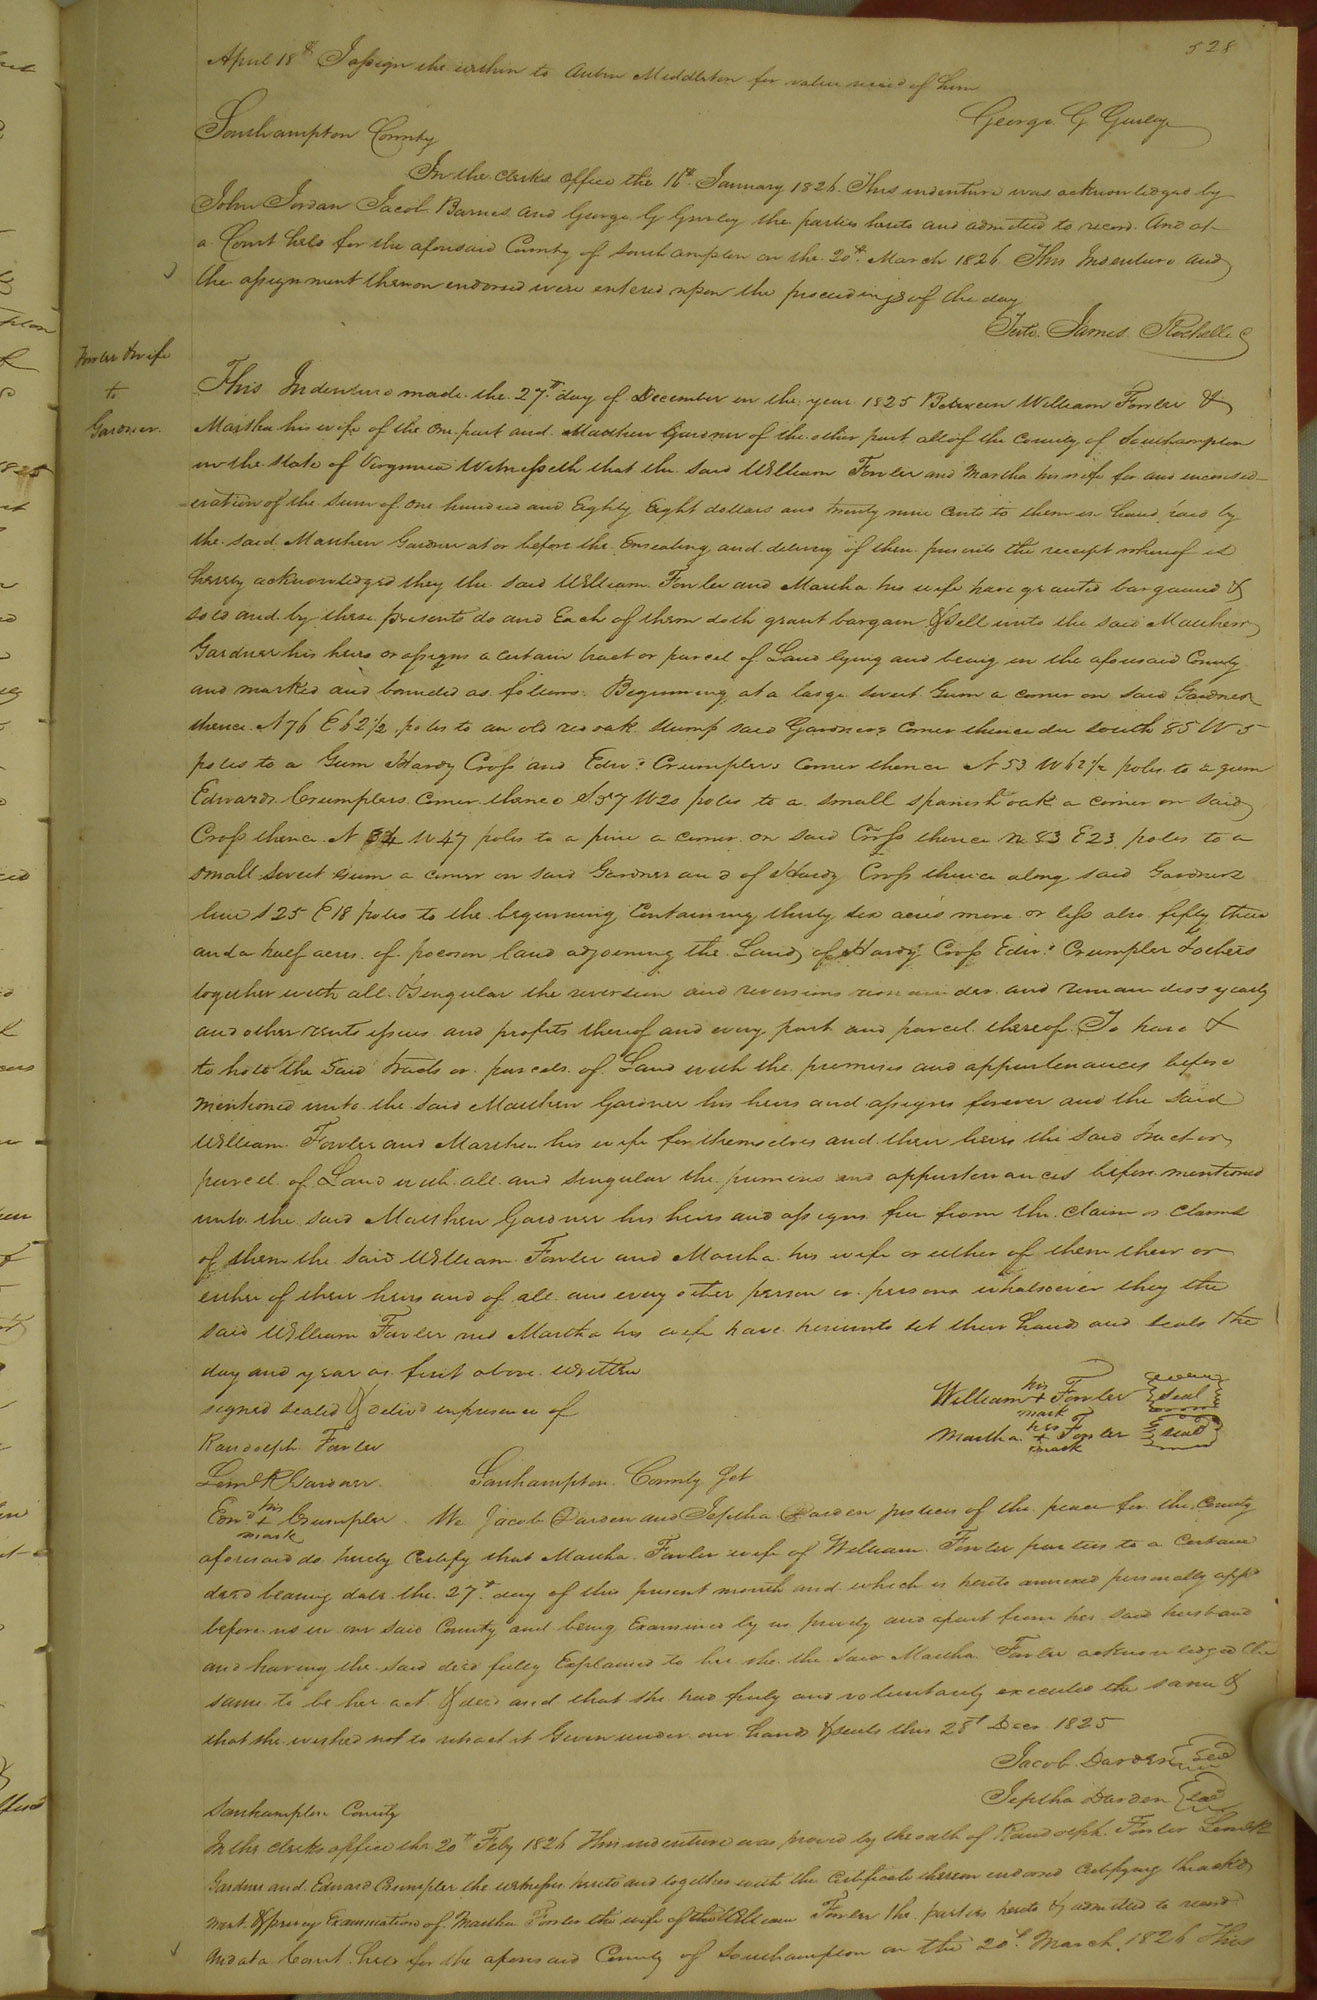 528
April 18th I assign the within to Autin Middleton for value recvd of him
George G Gurley
Southampton County
In the clerks office the 16th January 1826. This indenture was acknowledged by
John Jordan Jacob Barnes and George G Gurley the parties hereto and admitted to record. And at
a Court held for the aforesaid County of Southampton on the 20th March 1826 This Indenture and
the assignment thereon endorsed were entered upon the proceedings of the day
Teste. James Rochelle C
Fowler & wife
to
Gardner.
This Indenture made the 27th day of December in the year 1825 Between William Fowler &
Martha his wife of the one part and Matthew Gardner of the other part all of the County of Southampton
in the State of Virginia Witnesseth that the said William Fowler and Martha his wife for and in consid-
eration of the sum of one hundred and Eighty Eight dollars and twenty nine cents to them in hand paid by
the said Matthew Gardner at or before the Ensealing and delivery of these presents the receipt whereof is
hereby acknowledged they the said William Fowler and Martha his wife have granted bargained &
sold and by these presents do and Each of them doth grant bargain & sell unto the said Matthew
Gardner his heirs or assigns a certain tract or parcel of Land lying and being in the aforesaid County
and marked and bounded as follows: Beginning at a large sweet Gum a corner on said Gardner
thence N 76 E 62 1/2 poles to an old red oak stump said Gardners corner thence du south 85 W 5
poles to a Gum Hardy Cross and Edwd Crumplers corner thence N 53 W 62 1/2 poles to a gum
Edwards Crumplers corner thence S 57 W 20 poles to a small spanish oak a corner on said
Cross thence N 34 W 47 poles to a pine a corner on said Cross thence N 83 E 23 poles to a
small sweet gum a corner on said Gardner and of Hardy Cross thence along said Gardners
line S 25 E 18 poles to the beginning Containing thirty six acres more or less also fifty three
and a half acres of pocoson land adjoining the Land of Hardy Cross Edwd Crumpler & others
together with all & singular the reversion and reversions remainder and remainders yearly
and other rents issues and profits thereof and every part and parcel thereof. To have &
to hold the said tracts or parcels of Land with the premises and appurtenances before
mentioned unto the said Matthew Gardner his heirs and assigns forever and the said
William Fowler and Martha his wife for themselves and their heirs the said tract or
parcel of Land with all and singular the premises and appurtenances before mentioned
unto the said Matthew Gardner his heirs and assigns free from the claim or claims
of them the said William Fowler and Martha his wife or either of them their or
either of their heirs and of all and every other person or persons whatsoever they the
said William Fowler and Martha his wife have hereunto set their hands and seals the
day and year as first above written
signed sealed & delivd in presence of
William his + mark Fowler seal
Martha her + mark Fowler seal
Randolph Fowler
Leml R Gardner. Southampton County Sct
Edwd his + mark Crumpler. We Jacob Darden and Jeptha Darden justices of the peace for the County
aforesaid do hereby Certify that Martha Fowler wife of William Fowler parties to a certain
deed bearing date the 27th day of this present month and which is hereto annexed personally appd
before us in our said County and being Examined by us privily and apart from her said husband
and having the said deed fully Explained to her she the said Martha Fowler acknowledged the
same to be her act & deed and that she had freely and voluntarily executed the same &
that she wished not to retract it Given under our hands & seals this 28th Decr 1825
Jacob Darden seal
Jeptha Darden seal
Southampton County
In the clerks office the 20th Feby 1826 This indenture was proved by the oath of Randolph Fowler Leml R
Gardner and Edward Crumpler the witnesses hereto and together with the certificate thereon endorsed certifying the acknow
ment & privy Examination of Martha Fowler the wife of the William Fowler the parties hereto & admitted to record
And at a Court held for the aforesaid County of Southampton on the 20th March 1826 This